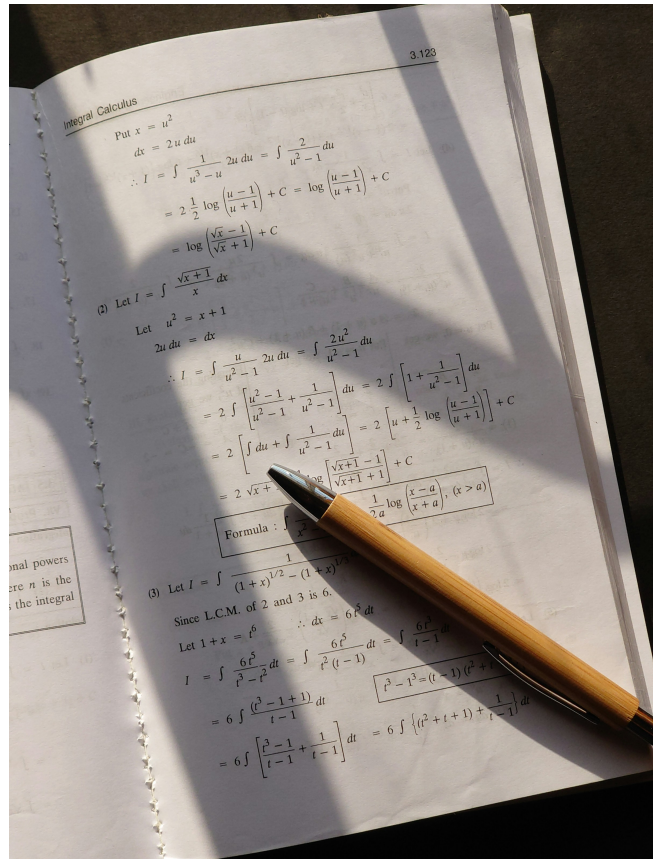 3.123
Integral Calculus
Put x = u²
dx = 2u du
∴ I = ∫ 1/(u³ − u) 2u du = ∫ 2/(u² − 1) du
= 2 1/2 log ((u − 1)/(u + 1)) + C = log ((u − 1)/(u + 1)) + C
= log ((√x − 1)/(√x + 1)) + C
(2) Let I = ∫ √(x + 1)/x dx
Let u² = x + 1
2u du = dx
∴ I = ∫ u/(u² − 1) 2u du = ∫ 2u²/(u² − 1) du
= 2 ∫ [(u² − 1)/(u² − 1) + 1/(u² − 1)] du = 2 ∫ [1 + 1/(u² − 1)] du
= 2 [∫ du + ∫ 1/(u² − 1) du] = 2 [u + 1/2 log ((u − 1)/(u + 1))] + C
= 2 √x + log [(√(x+1) − 1)/(√(x+1) + 1)] + C
Formula : ∫ 1/2a log ((x − a)/(x + a)), (x > a)
(3) Let I = ∫ 1/((1 + x)^1/2 − (1 + x)^1/
Since L.C.M. of 2 and 3 is 6.
Let 1 + x = t⁶ ∴ dx = 6t⁵ dt
I = ∫ 6t⁵/(t³ − t²) dt = ∫ 6t⁵/(t² (t − 1)) dt = ∫ 6t³/(t − 1)
= 6 ∫ (t³ − 1 + 1)/(t − 1) dt
t³ − 1³ = (t − 1) (t² +
= 6 ∫ [(t³ − 1)/(t − 1) + 1/(t − 1)] dt = 6 ∫ {(t² + t + 1) + 1/(t − 1)} dt
onal powers
ere n is the
s the integral